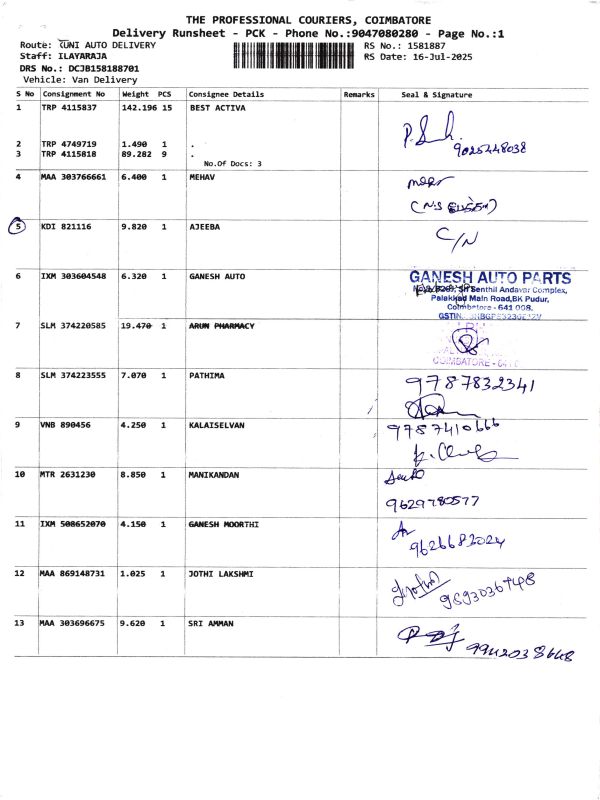 THE PROFESSIONAL COURIERS, COIMBATORE
Delivery Runsheet - PCK - Phone No.:9047080280 - Page No.:1
Route: KUNI AUTO DELIVERY
RS No.: 1581887
Staff: ILAYARAJA
RS Date: 16-Jul-2025
DRS No.: DCJB158188701
Vehicle: Van Delivery
S No Consignment No Weight PCS Consignee Details Remarks Seal & Signature
1 TRP 4115837 142.196 15 BEST ACTIVA
2 TRP 4749719 1.490 1 .
3 TRP 4115818 89.282 9 .
9025448038
No.Of Docs: 3
4 MAA 303766661 6.400 1 MEHAV
5 KDI 821116 9.820 1 AJEEBA
C/N
6 IXM 303604548 6.320 1 GANESH AUTO
GANESH AUTO PARTS
Senthil Andavar Complex,
Palakkad Main Road,BK Pudur,
Coimbatore - 641 008.
7 SLM 374220585 19.470 1 ARUN PHARMACY
COIMBATORE - 641
8 SLM 374223555 7.070 1 PATHIMA
9787832341
9 VNB 890456 4.250 1 KALAISELVAN
9787410666
10 MTR 2631230 8.850 1 MANIKANDAN
9629780577
11 IXM 508652070 4.150 1 GANESH MOORTHI
9626682024
12 MAA 869148731 1.025 1 JOTHI LAKSHMI
13 MAA 303696675 9.620 1 SRI AMMAN